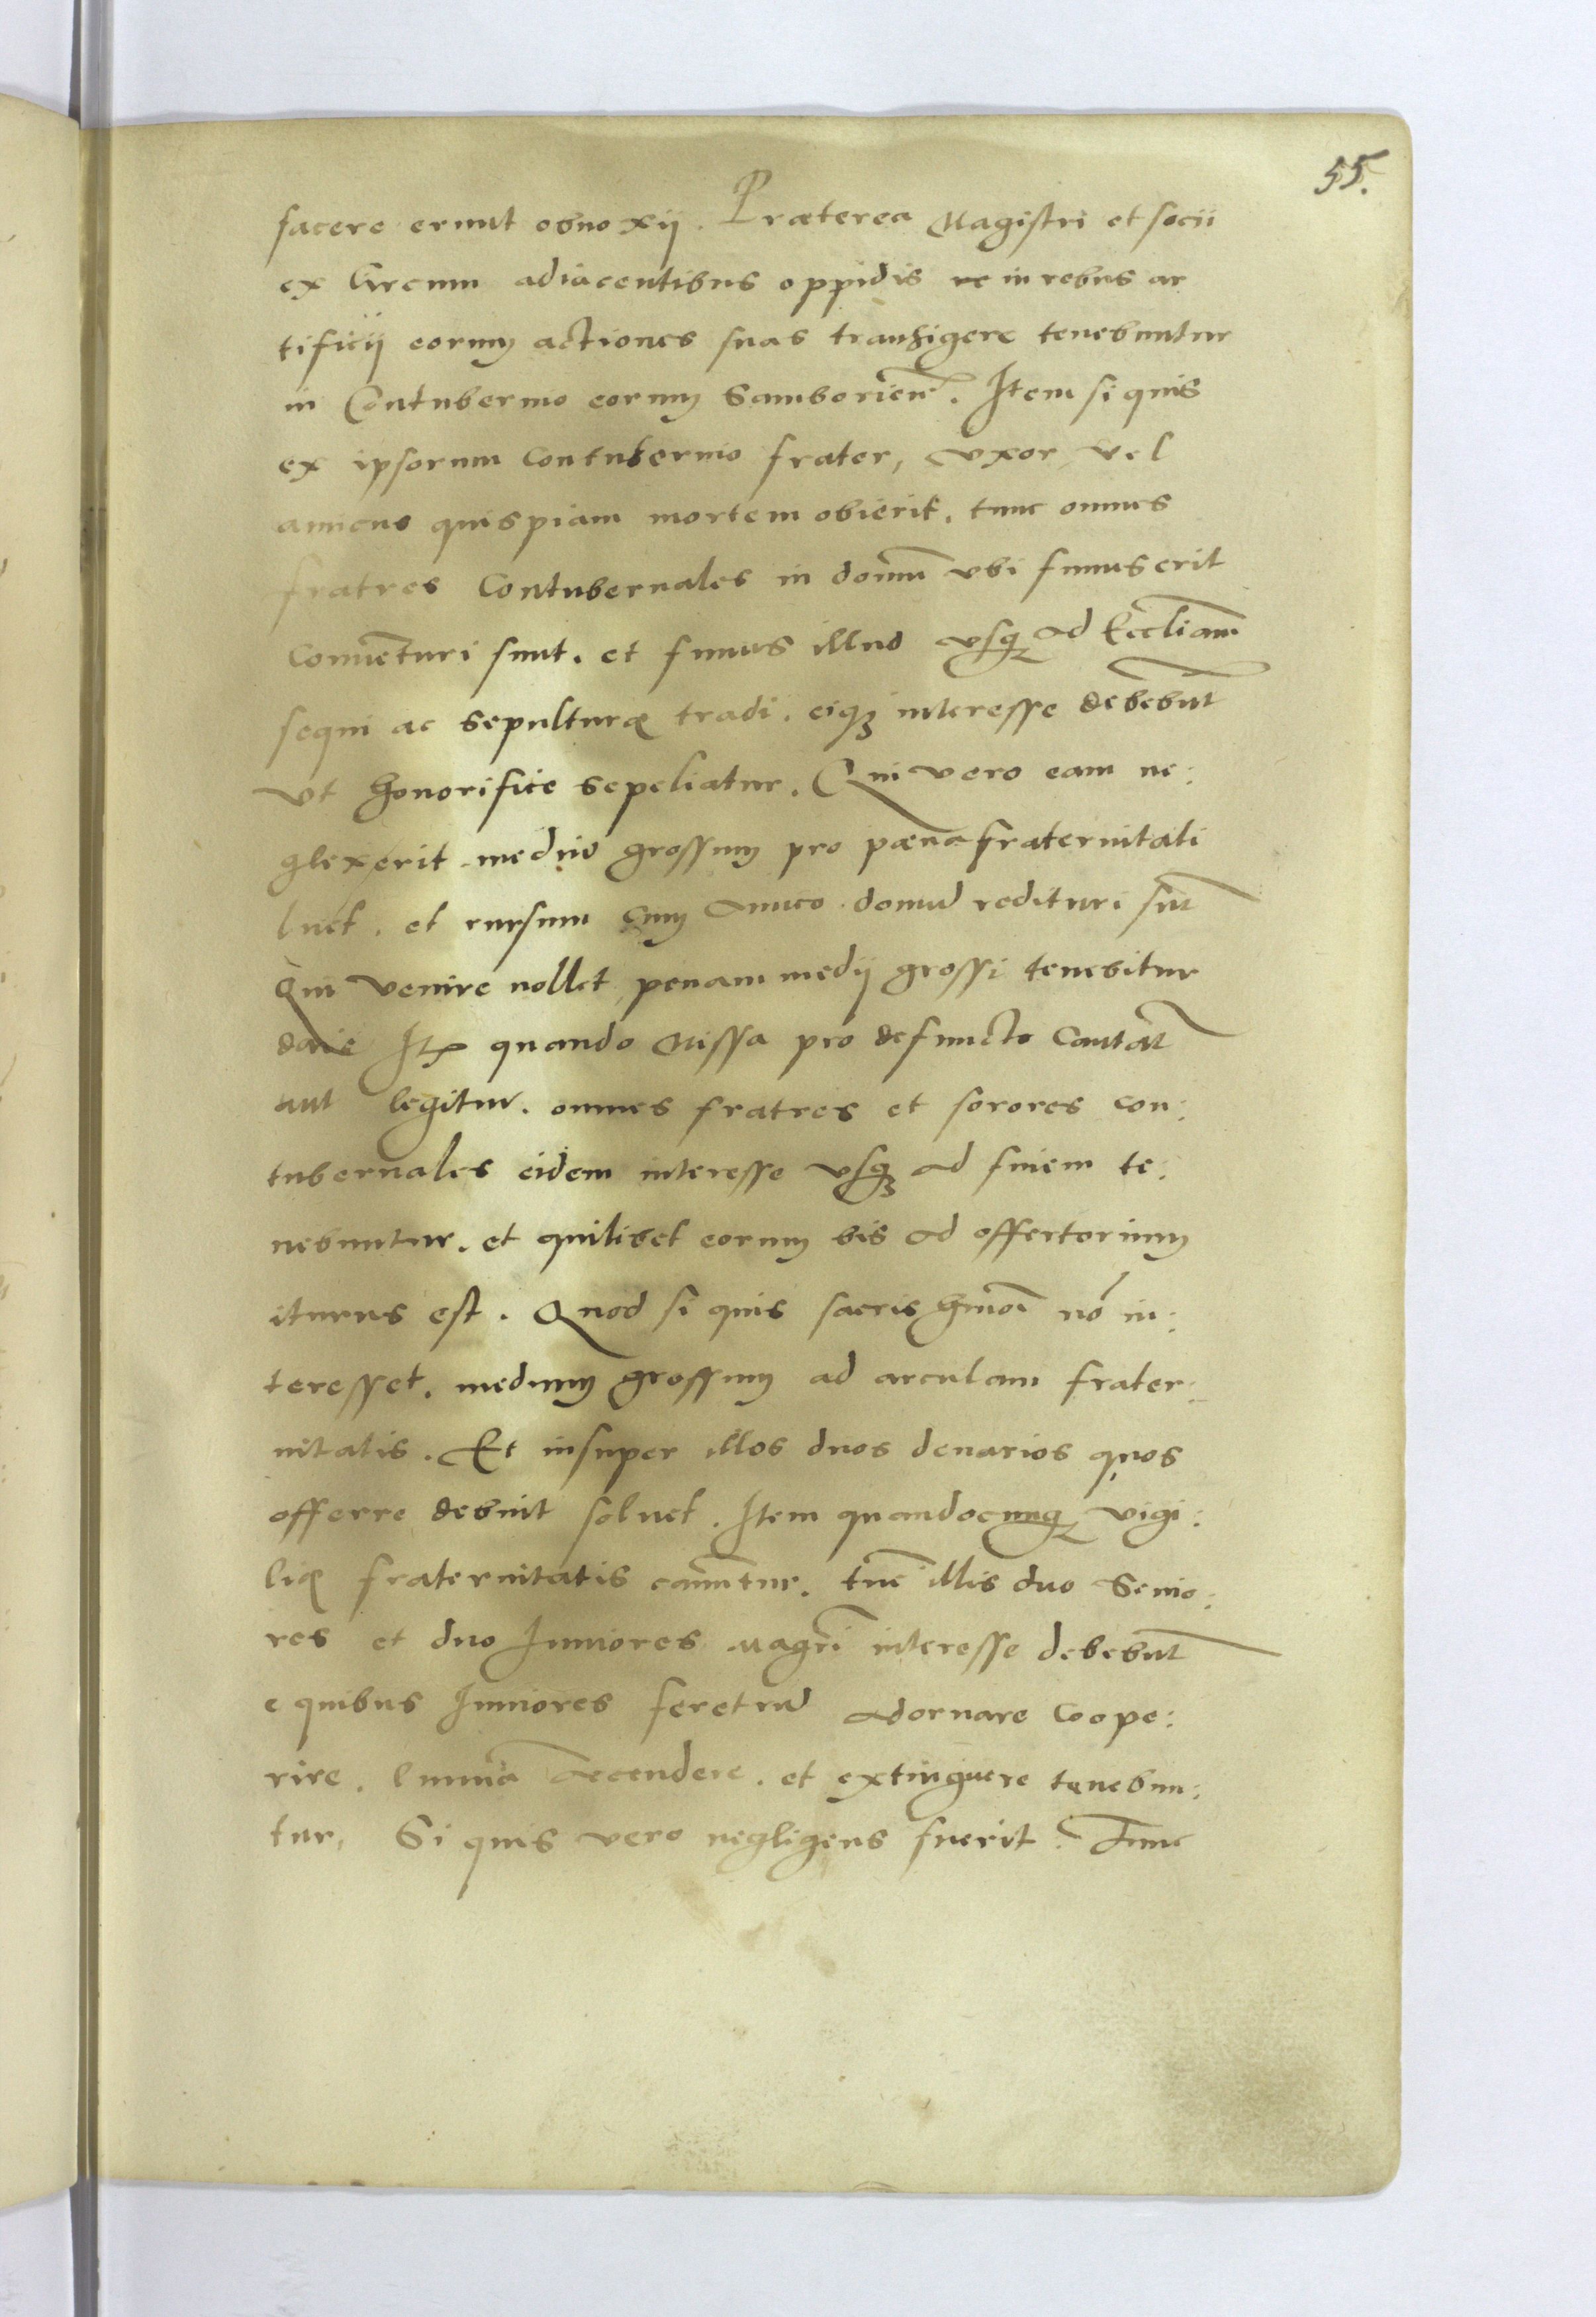 55.
facere erunt obnoxij. Præterea Magistri et socii
ex Circum adiacentibus oppidis in rebus ar
tificij eorum actiones suas transigere tenebuntur
in Contubernio eorum Samborien̄. Item si quis
ex ipsorum contubernio frater, vxor vel
amicus quispiam mortem obierit, tunc omnes
fratres Contubernales in domū vbi funus erit
Conuēturi sunt. et funus illud vsq₃ ad Eccliam
sequi ac sepulturæ tradi. eiq₃ interesse debebūt
vt honorifice sepeliatur. Qui vero eam ne:
glexerit mediū grossum pro pæna fraternitati
luet. et rursum cum amico domū redituri sūt
Qui venire nollet penam medij grossi tenebitur
dare Itē quando Missa pro defuncto Cantat̄
aut legitur. omnes fratres et sorores con:
tubernales eidem interesse vsq₃ ad finem te:
nebuntur. et quilibet eorum bis ad offertorium
iturus est. Quod si quis sacris hmōi nō in:
teresset. medium grossum ad arculam frater:
nitatis. Et insuper illos duos denarios quos
offerre debuit soluet. Item quandocunq₃ vigi:
liæ fraternitatis canūtur. tūc illis duo Senio:
res et duo Iuniores Magrī interesse debebūt
e quibus Iuniores feretrū adornare coope:
rire. Luminā accendere. et extinguere tenebun:
tur, Si quis vero negligens fuerit. Tunc